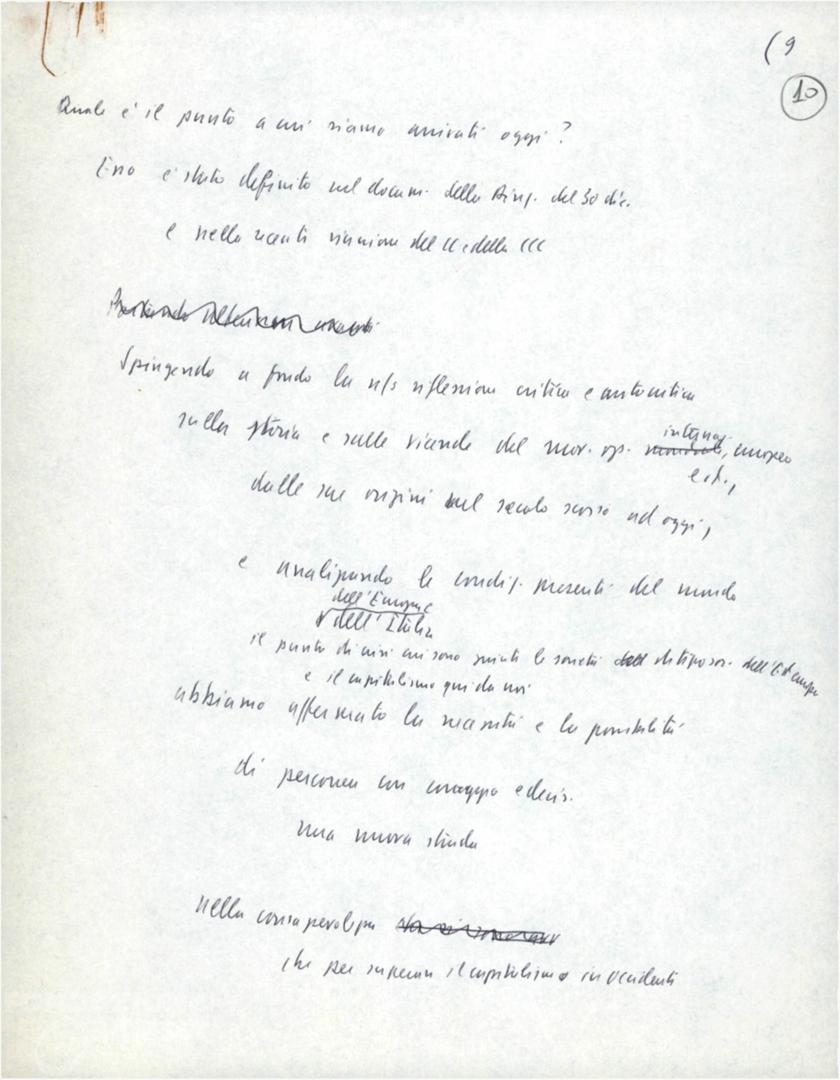 (9
10
Quale è il punto a cui siamo arrivati oggi?
Esso è stato definito nel docum. della Direz. del 30 dic.
e nelle recenti riunioni del CC e della CCC
Spingendo a fondo la n/s riflessione critica e autocritica
sulla storia e sulle vicende del mov. op. internaz., europeo
e it.,
dalle sue origini nel secolo scorso ad oggi,
e analizzando le condiz. presenti del mondo
dell'Europa e
dell'Italia
il punto di crisi cui sono giunte le società di tipo sov. dell'Est europ
e il capitalismo qui da noi
abbiamo affermato la necessità e la possibilità
di percorrere con coraggio e decis.
una nuova strada
nella consapevolezza
che per superare il capitalismo in occidente